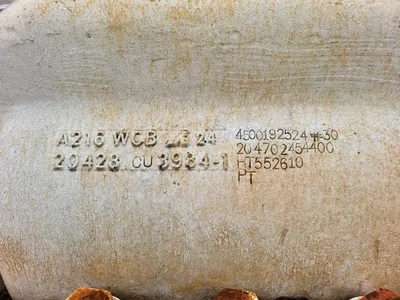 A216 WCB E 24
20428 OU 3984-1
4500192524-30
204702454400
HT552610
PT